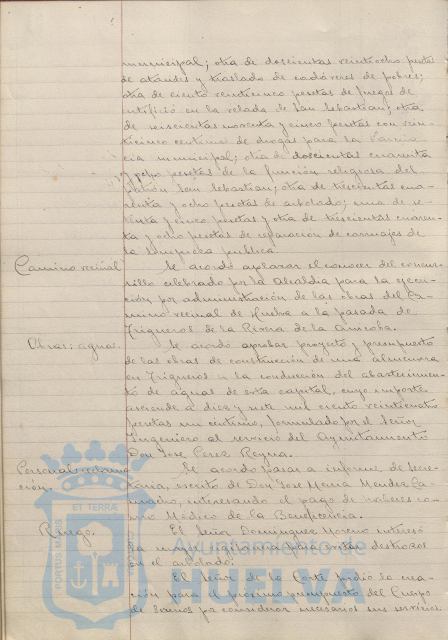 municipal; otra de doscientas veintiocho pesetas
de ataudes y traslado de cadáveres de pobres;
otra de ciento veinticinco pesetas de fuegos de
artificio en la velada de San Sebastian; otra
de seiscientas noventa y cinco pesetas con vein-
ticinco centimos de drogas para la Farma-
cia municipal; otra de doscientas cuarenta
y ocho pesetas de la función religiosa del
patrón San Sebastian; otra de trescientas cua-
renta y ocho pesetas de arbolado; una de se-
tenta y cinco pesetas y otra de trescientas cuaren-
ta y ocho pesetas de reparación de carruajes de
la limpieza publica.
Camino vecinal
Se acordó aplazar el conocer del concur-
sillo celebrado por la Alcaldia para la ejecu-
ción por administración de las obras del Ca-
mino vecinal de Huelva a la pasada de
Trigueros de la Rivera de la Anicoba.
Obras: aguas.
Se acordó aprobar proyecto y presupuesto
de las obras de construcción de una
en Trigueros a la conducción del abastecimien-
to de aguas de esta capital, cuyo importe
asciende a diez y siete mil ciento veinticuatro
pesetas un centimo, formulado por el Señor
Ingeniero al servicio del Ayuntamiento
Don José Perez Reyna.
Personal: reclama-
ción.
Se acordó pasar a informe de Secre-
taria, escrito de Don José Maria Mendez Ca-
macho, interesando el pago de haberes co-
mo Médico de la Beneficencia.
Ruego.
El Señor Dominguez Moreno interesó
la mayor vigilancia para evitar destrozos
en el arbolado.
El Señor de la Corte pidió la crea-
ción para el próximo presupuesto del Cuerpo
de Serenos por considerar necesarios sus servicios
PORTUS MARIS
ET TERRÆ
CUSTODIA
Ayuntamiento de
HUELVA